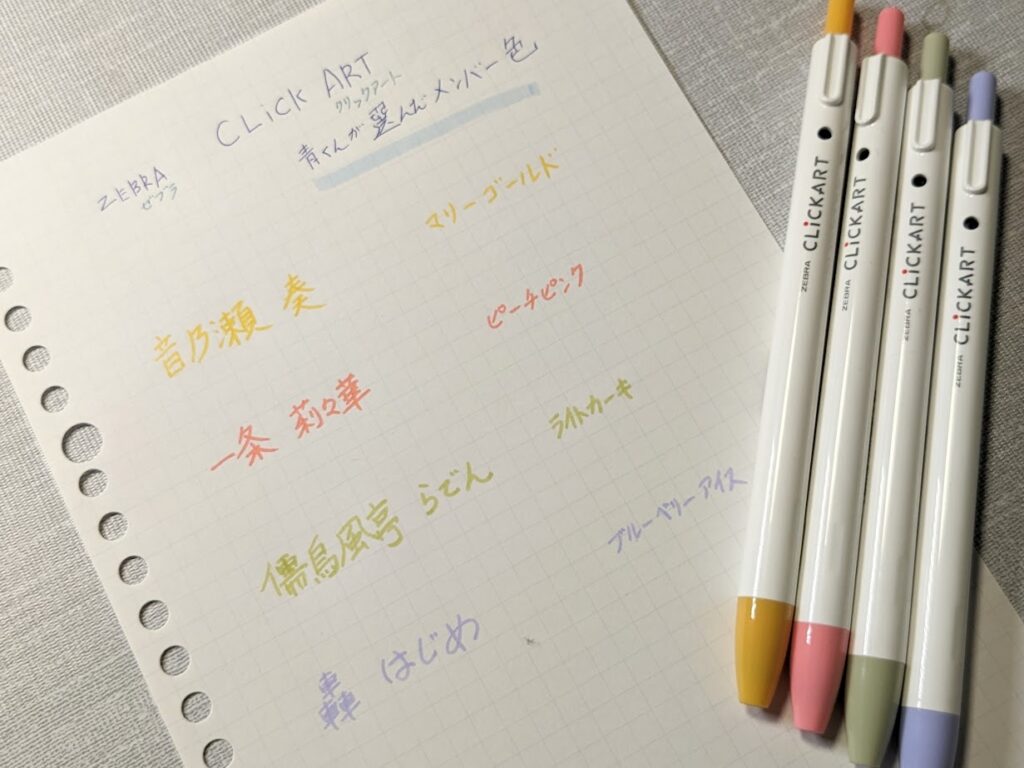 CLiCK ART
クリックアート
青くんが選んだメンバー色
ZEBRA
ゼブラ
マリーゴールド
音乃瀬 奏
ピーチピンク
一条 莉々華
ライトカーキ
儒烏風亭 らでん
ブルーベリーアイス
轟 はじめ
ZEBRA CLiCKART
ZEBRA CLiCKART
ZEBRA CLiCKART
ZEBRA CLiCKART